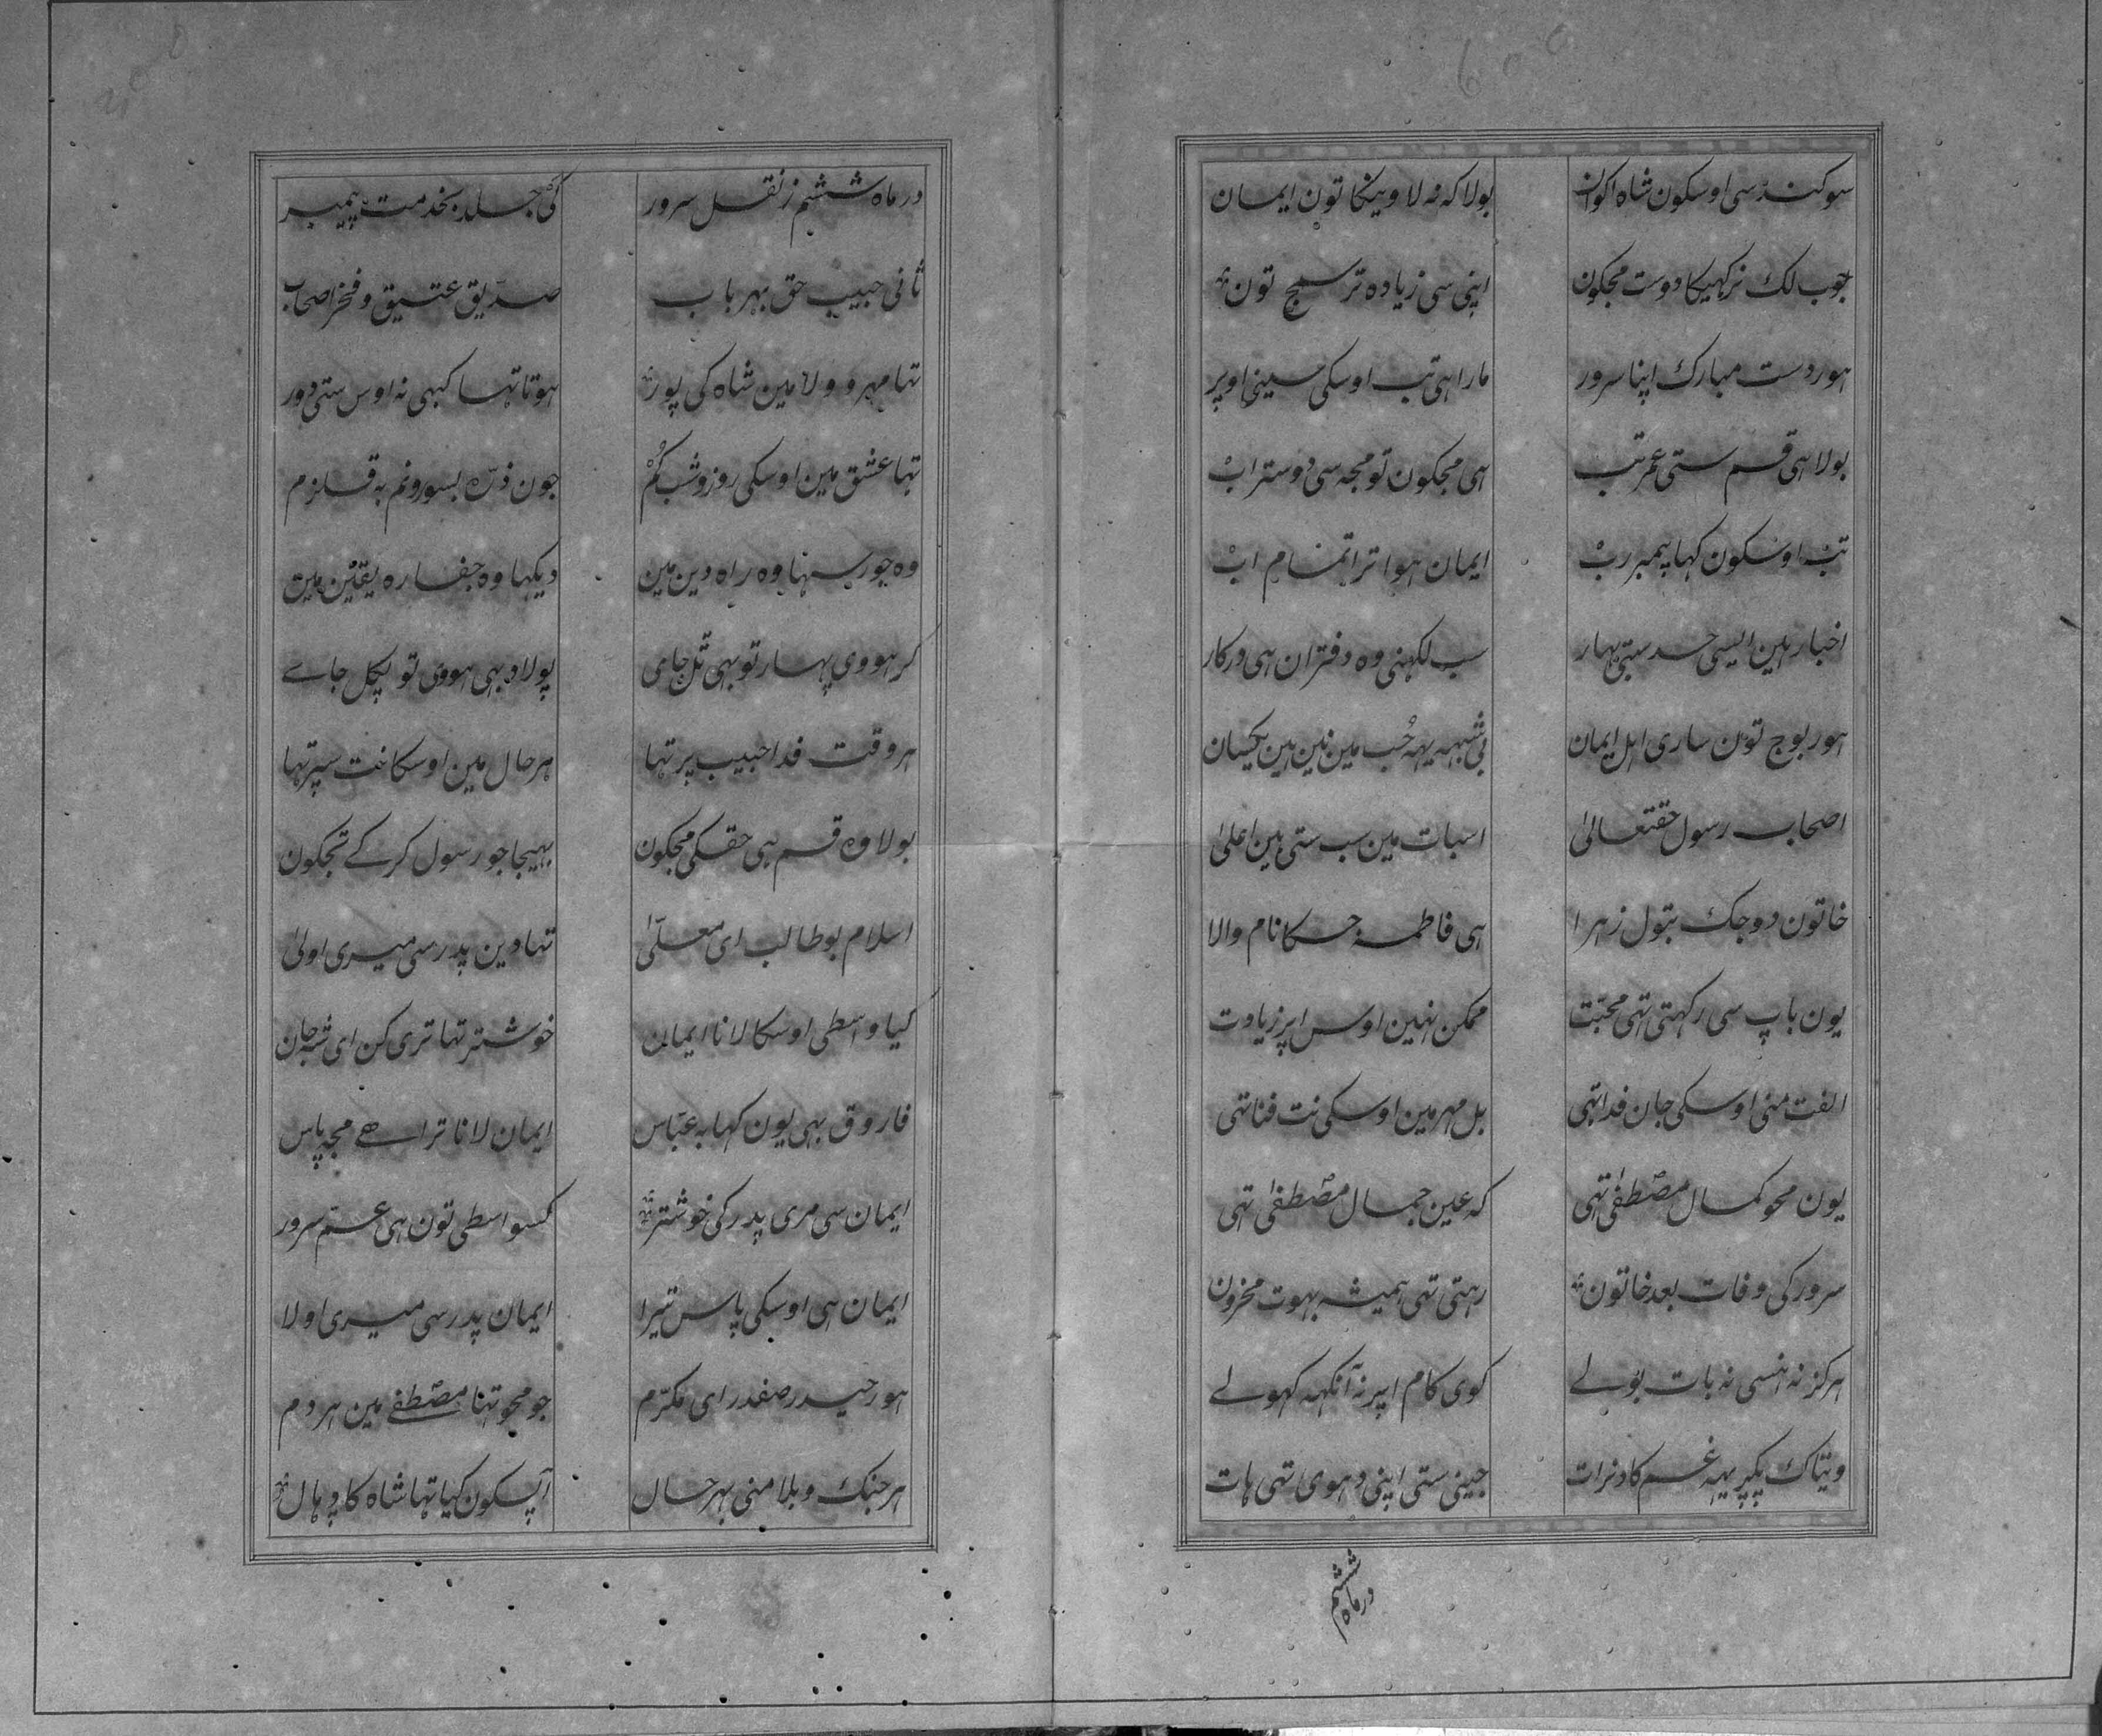 سوکند سی اوسکون شاه اکوان بولا که نه لاوینکا تون ایمان
جوب لک نرکهیکا دوست مجکون اپنی سی زیاده تر سمج تون
هور دست مبارک اپنا سرور مارا هی تب اوسکی سینی اوپر
بولا هی قسم ستی عمر تب هی مجکون تو مجه سی دوستر اب
تب اوسکون کها پیمبر رب ایمان هوا ترا تمام اب
اخبار مین ایسی حد ستی بهار سب لکهنی وه دفتران هی درکار
هور بوج تون ساری اهل ایمان بی شبهه یهه حب مین نین هین یکسان
اصحاب رسول حقتعالیٰ اسبات مین سب ستی هین اعلیٰ
خاتون دو جک بتول زهرا هی فاطمه جسکا نام والا
یون باپ سی رکهتی تهی محبّت ممکن نهین اوس اپر زیادت
الفت منی اوسکی جان فدا تهی بل مهر مین اوسکی نت فنا تهی
یون محو کمال مصطفیٰ تهی که عین جمال مصطفیٰ تهی
سرور کی وفات بعد خاتون رهتی تهی همیشه بهوت محزون
هرکز نه هنسی نه بات بولے کوی کام اپر نه آنکهه کهولے
ویتاک پکر یهه غم کا دنرات جینی ستی اپنی دهوی تهی هات
در ماه ششم
در ماه ششم ز نقل سرور کی جلد بخدمت پیمبر
ثانی حبیب حق بهر باب صدّیق عتیق و فخر اصحاب
تها مهر و ولا مین شاه کی پور هوتا تها کبهی نه اوس ستی دور
تها عشق مین اوسکی روز و شب کم جون ذرّه بسور و نم به قلزم
وه جور سها وه راه دین مین دیکها وه جفا ره یقین مین
کر هووی پهار تو بهی تل جای پولاد بهی هووی تو پکل جاے
هر وقت فدا حبیب پر تها هر حال مین اوسکا نت سپر تها
بولا وه قسم هی حقکی مجکون بهیجا جو رسول کر کے تجکون
اسلام بو طالب ای معلّیٰ تها دین پدر سی میری اولیٰ
کیا واسطی اوسکا لانا ایمان خوشتر تها تری کن ای شه جان
فاروق بهی یون کها به عبّاس ایمان لانا ترا هے مجه پاس
ایمان سی مری پدر کی خوشتر کسواسطی تون هی عمّ سرور
ایمان هی اوسکی پاس تیرا ایمان پدر سی میری اولا
هور حیدر صفدر ای مکرّم جو محو تها مصطفے مین هر دم
هر جنک و بلا منی بهر حال آپسکون کیا تها شاه کا دهال